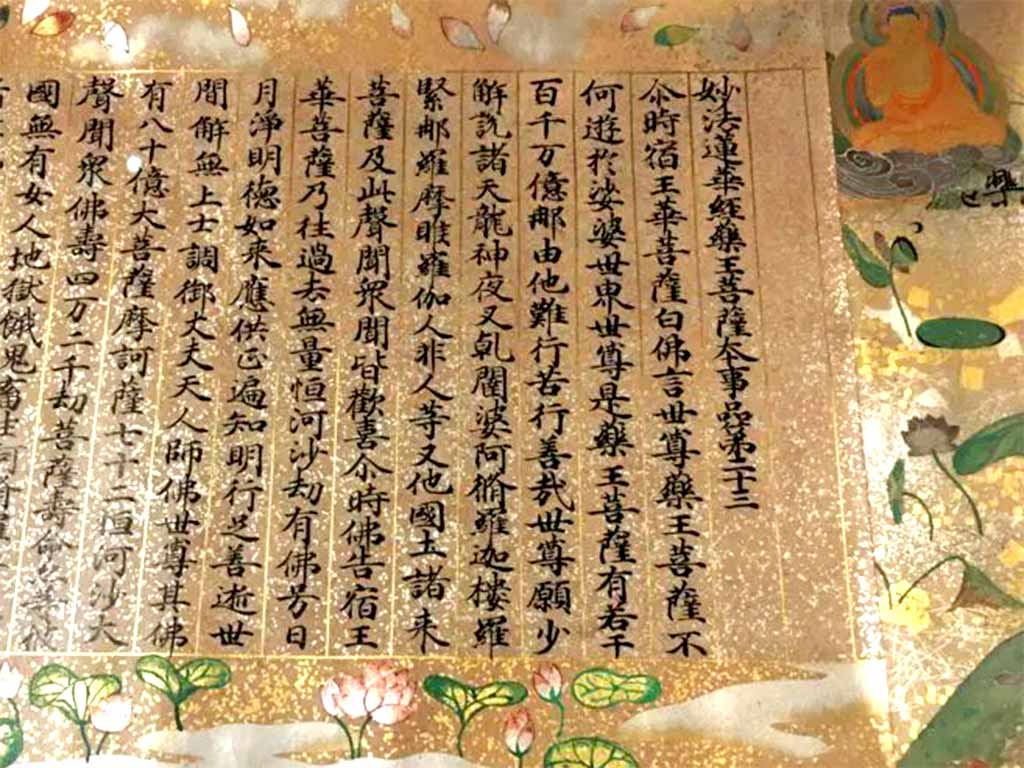 妙法蓮華経藥王菩薩本事品第二十三
尒時宿王華菩薩白佛言世尊藥王菩薩不
何遊於娑婆世界世尊是藥王菩薩有若干
百千万億那由他難行苦行善哉世尊願少
解說諸天龍神夜叉乹闥婆阿脩羅迦樓羅
緊那羅摩睺羅伽人非人等又他國土諸来
菩薩及此聲聞衆聞皆歡喜尒時佛告宿王
華菩薩乃往過去無量恒河沙劫有佛号日
月淨明德如来應供正遍知明行足善逝世
間解無上士調御丈夫天人師佛世尊其佛
有八十億大菩薩摩訶薩七十二恒河沙大
聲聞衆佛壽四万二千劫菩薩壽命亦等彼
國無有女人地獄餓鬼畜生阿脩羅